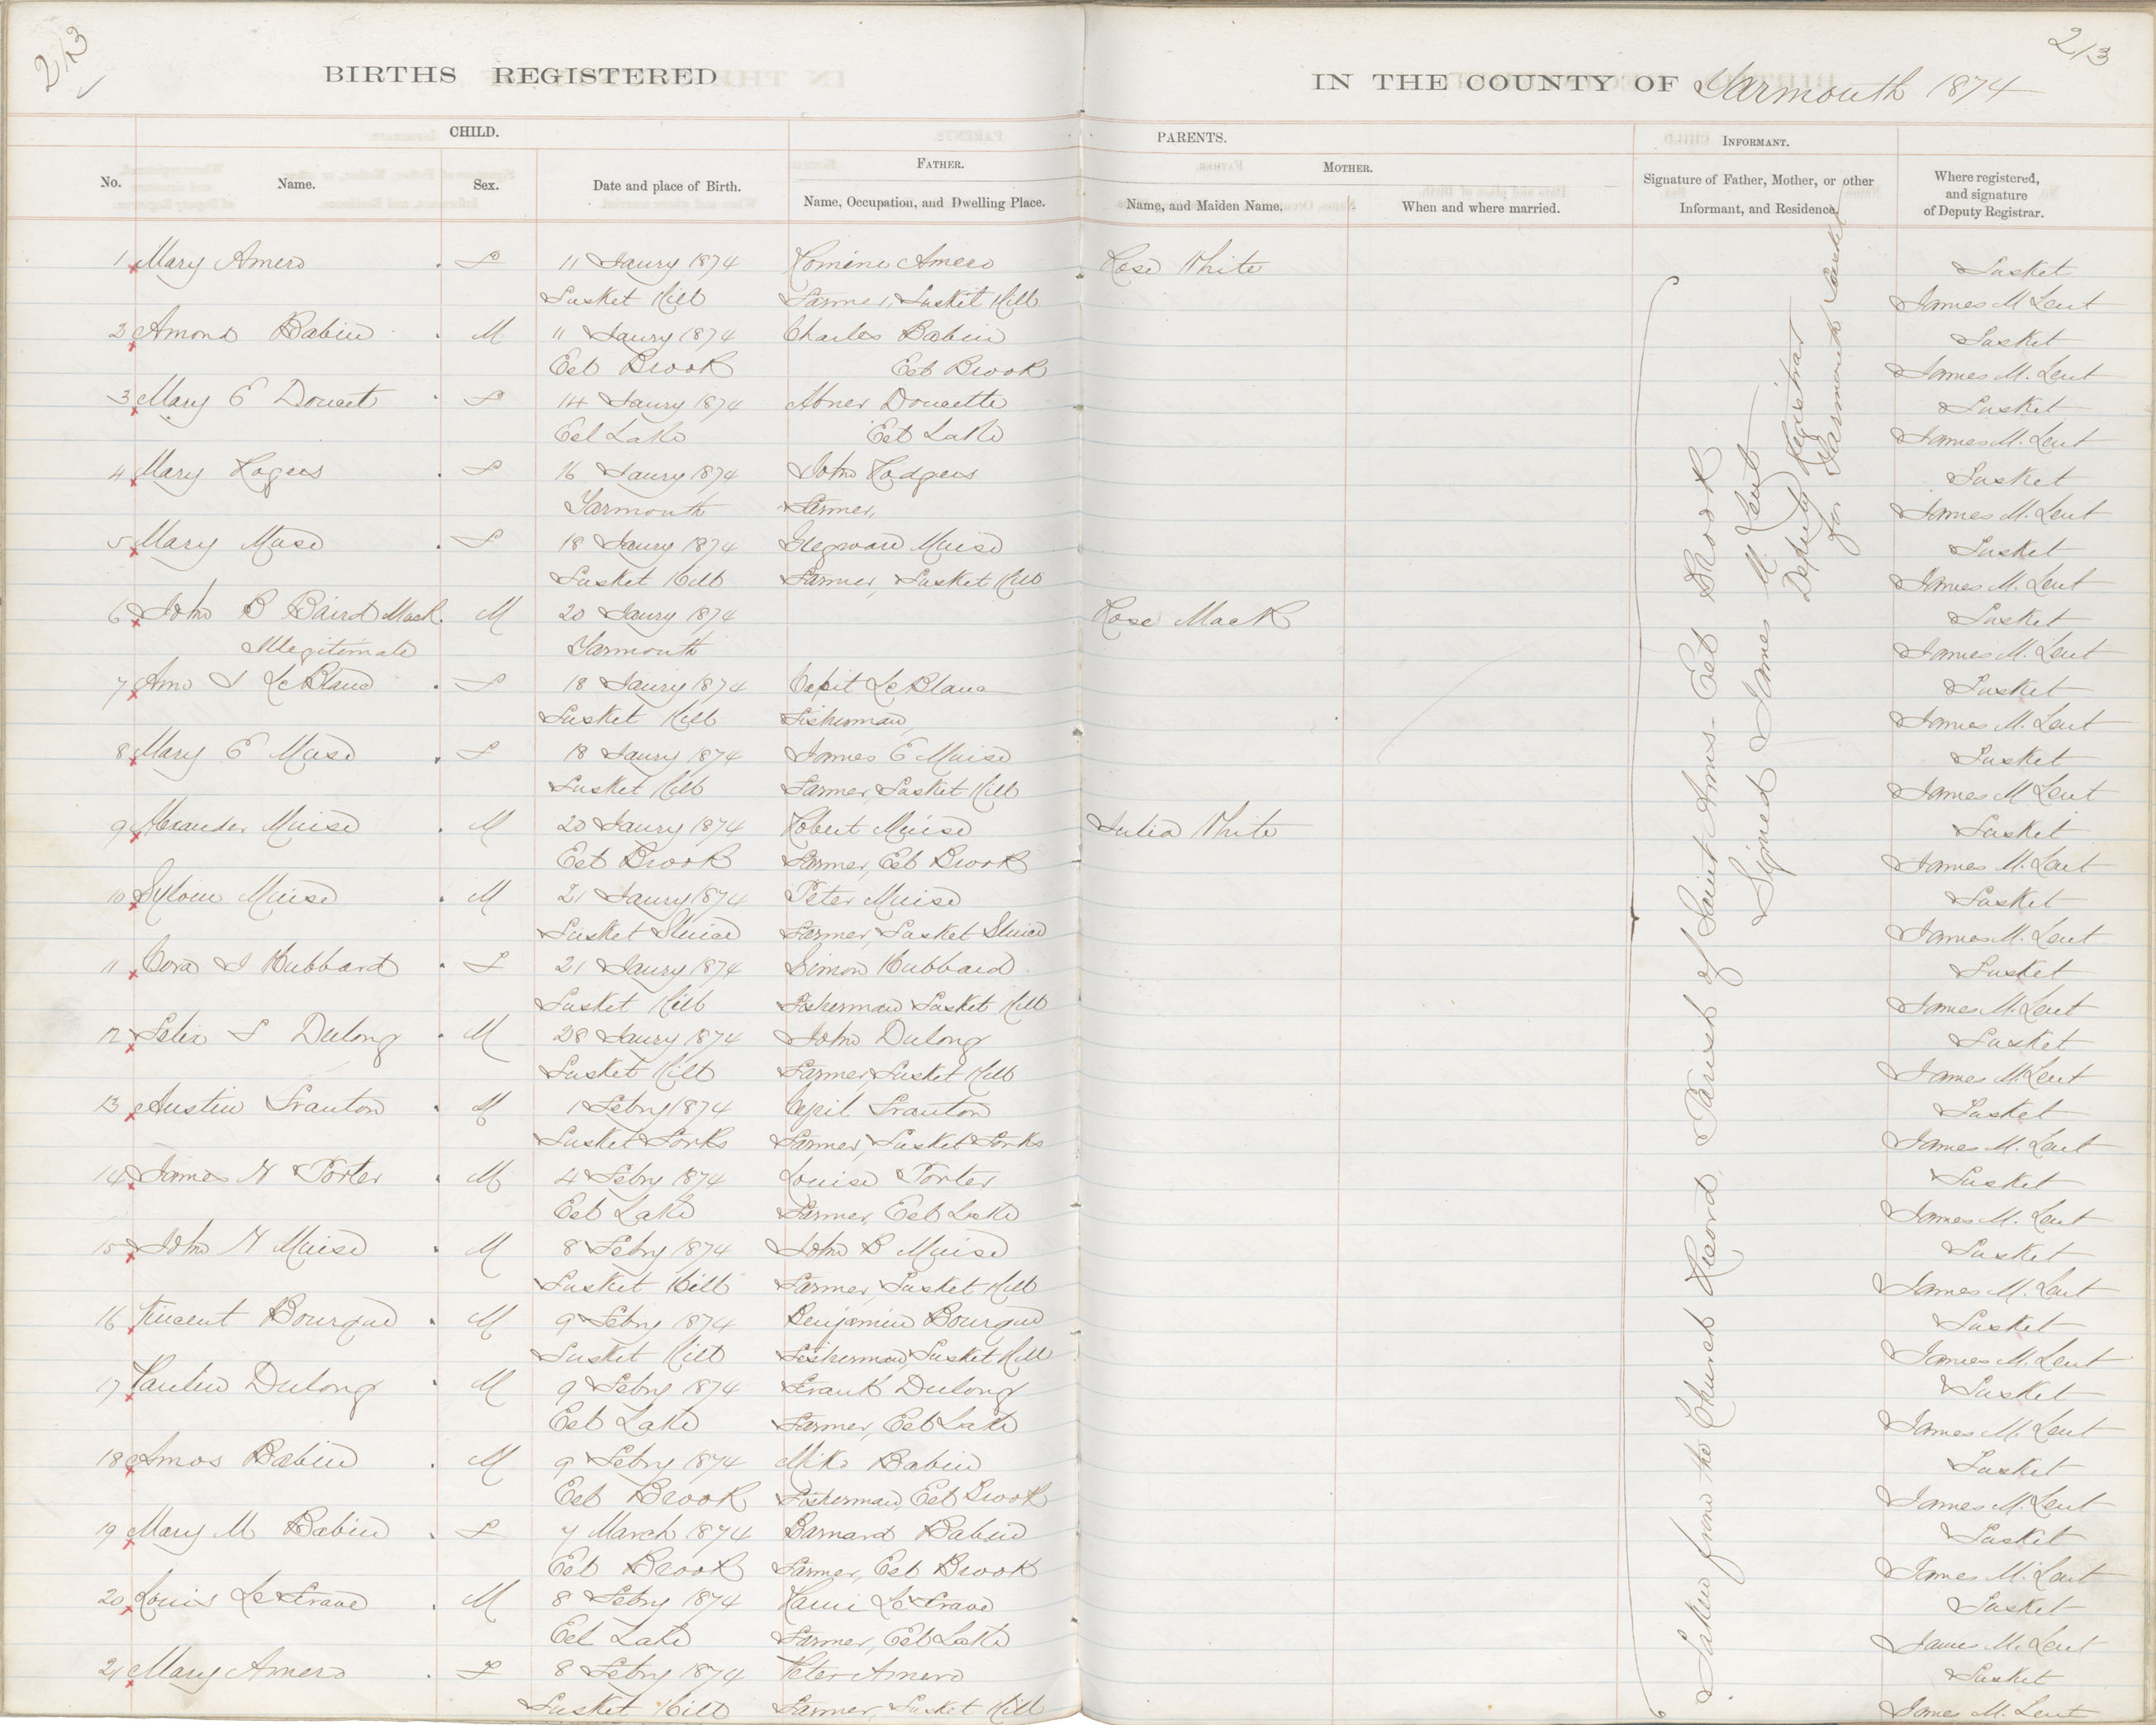 213
213
BIRTHS REGISTERED
IN THE COUNTY OF Yarmouth 1874
CHILD.
PARENTS.
INFORMANT.
No.
Name.
Sex.
Date and place of Birth.
FATHER.
Name, Occupation, and Dwelling Place.
MOTHER.
Name, and Maiden Name.
When and where married.
Signature of Father, Mother, or other
Informant, and Residence.
Where registered,
and signature
of Deputy Registrar.
1 Mary Amero F 11 Jaury 1874 Romine Amero Rose White Tusket
Tusket Hill Farmer, Tusket Hill James M Lent
2 Amond Babin M 11 Jaury 1874 Charles Babin Tusket
Eel Brook Eel Brook James M. Lent
3 Mary E Doucet F 14 Jaury 1874 Abner Doucette Tusket
Eel Lake Eel Lake James M. Lent
4 Mary Rogers F 16 Jaury 1874 John Rodgers Tusket
Yarmouth Farmer, James M. Lent
5 Mary Muse F 18 Jaury 1874 Gregware Muise Tusket
Tusket Hill Farmer, Tusket Hill James M. Lent
6 John B Baird Mack M 20 Jaury 1874 Rose Mack Tusket
Illegitimate Yarmouth James M. Lent
7 Ann I LeBlanc F 18 Jaury 1874 Capit LeBlanc Tusket
Tusket Hill Fisherman, James M. Lent
8 Mary E Muse F 18 Jaury 1874 James E Muise Tusket
Tusket Hill Farmer, Tusket Hill James M Lent
9 Alexander Muise M 20 Jaury 1874 Robert Muise Julia White Tusket
Eel Brook Farmer, Eel Brook James M. Lent
10 Sylvin Muise M 21 Jaury 1874 Peter Muise Tusket
Tusket Sluice Farmer, Tusket Sluice James M. Lent
11 Cora I Hubbard F 21 Jaury 1874 Simon Hubbard Tusket
Tusket Hill Fisherman Tusket Hill James M. Lent
12 Felix F Dulong M 28 Jaury 1874 John Dulong Tusket
Tusket Hill Farmer, Tusket Hill James M. Lent
13 Austin Frauton M 1 Febry 1874 Cyril Frauton Tusket
Tusket Forks Farmer, Tusket Forks James M. Lent
14 James N Porter M 4 Febry 1874 Louise Porter Tusket
Eel Lake Farmer, Eel Lake James M. Lent
15 John N Muise M 8 Febry 1874 John B Muise Tusket
Tusket Hill Farmer, Tusket Hill James M. Lent
16 Vincent Bourque M 9 Febry 1874 Benjamin Bourque Tusket
Tusket Hill Fisherman, Tusket Hill James M. Lent
17 Paulin Dulong M 9 Febry 1874 Frank Dulong Tusket
Eel Lake Farmer, Eel Lake James M. Lent
18 Amos Babin M 9 Febry 1874 Mike Babin Tusket
Eel Brook Fisherman, Eel Brook James M. Lent
19 Mary M Babin F 7 March 1874 Barnard Babin Tusket
Eel Brook Farmer, Eel Brook James M. Lent
20 Louis LeFrave M 8 Febry 1874 LeFrave Tusket
Eel Lake Farmer, Eel Lake James M. Lent
21 Mary Amero F 8 Febry 1874 Peter Amero Tusket
Tusket Hill Farmer, Tusket Hill James M. Lent
Taken from the Church Record, Parish of Saint Anns - Eel Brook
Signed James M. Lent
Deputy Registrar
for Yarmouth